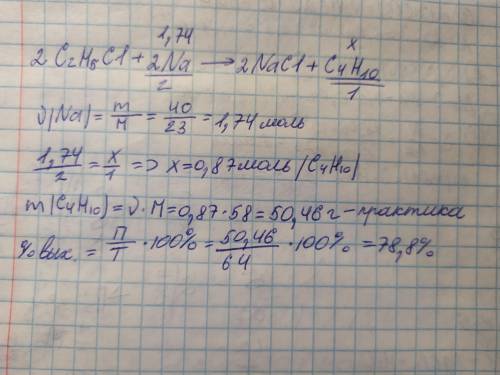 1,74 x
2 C₂H₅Cl + 2Na → 2NaCl + C₄H₁₀
2 1
ν(Na) = m/M = 40/23 = 1,74 моль
1,74/2 = x/1 => x = 0,87 моль (C₄H₁₀)
m(C₄H₁₀) = ν · M = 0,87 · 58 = 50,46 г - практика
% вых. = П/Т · 100% = 50,46/64 · 100% = 78,8%